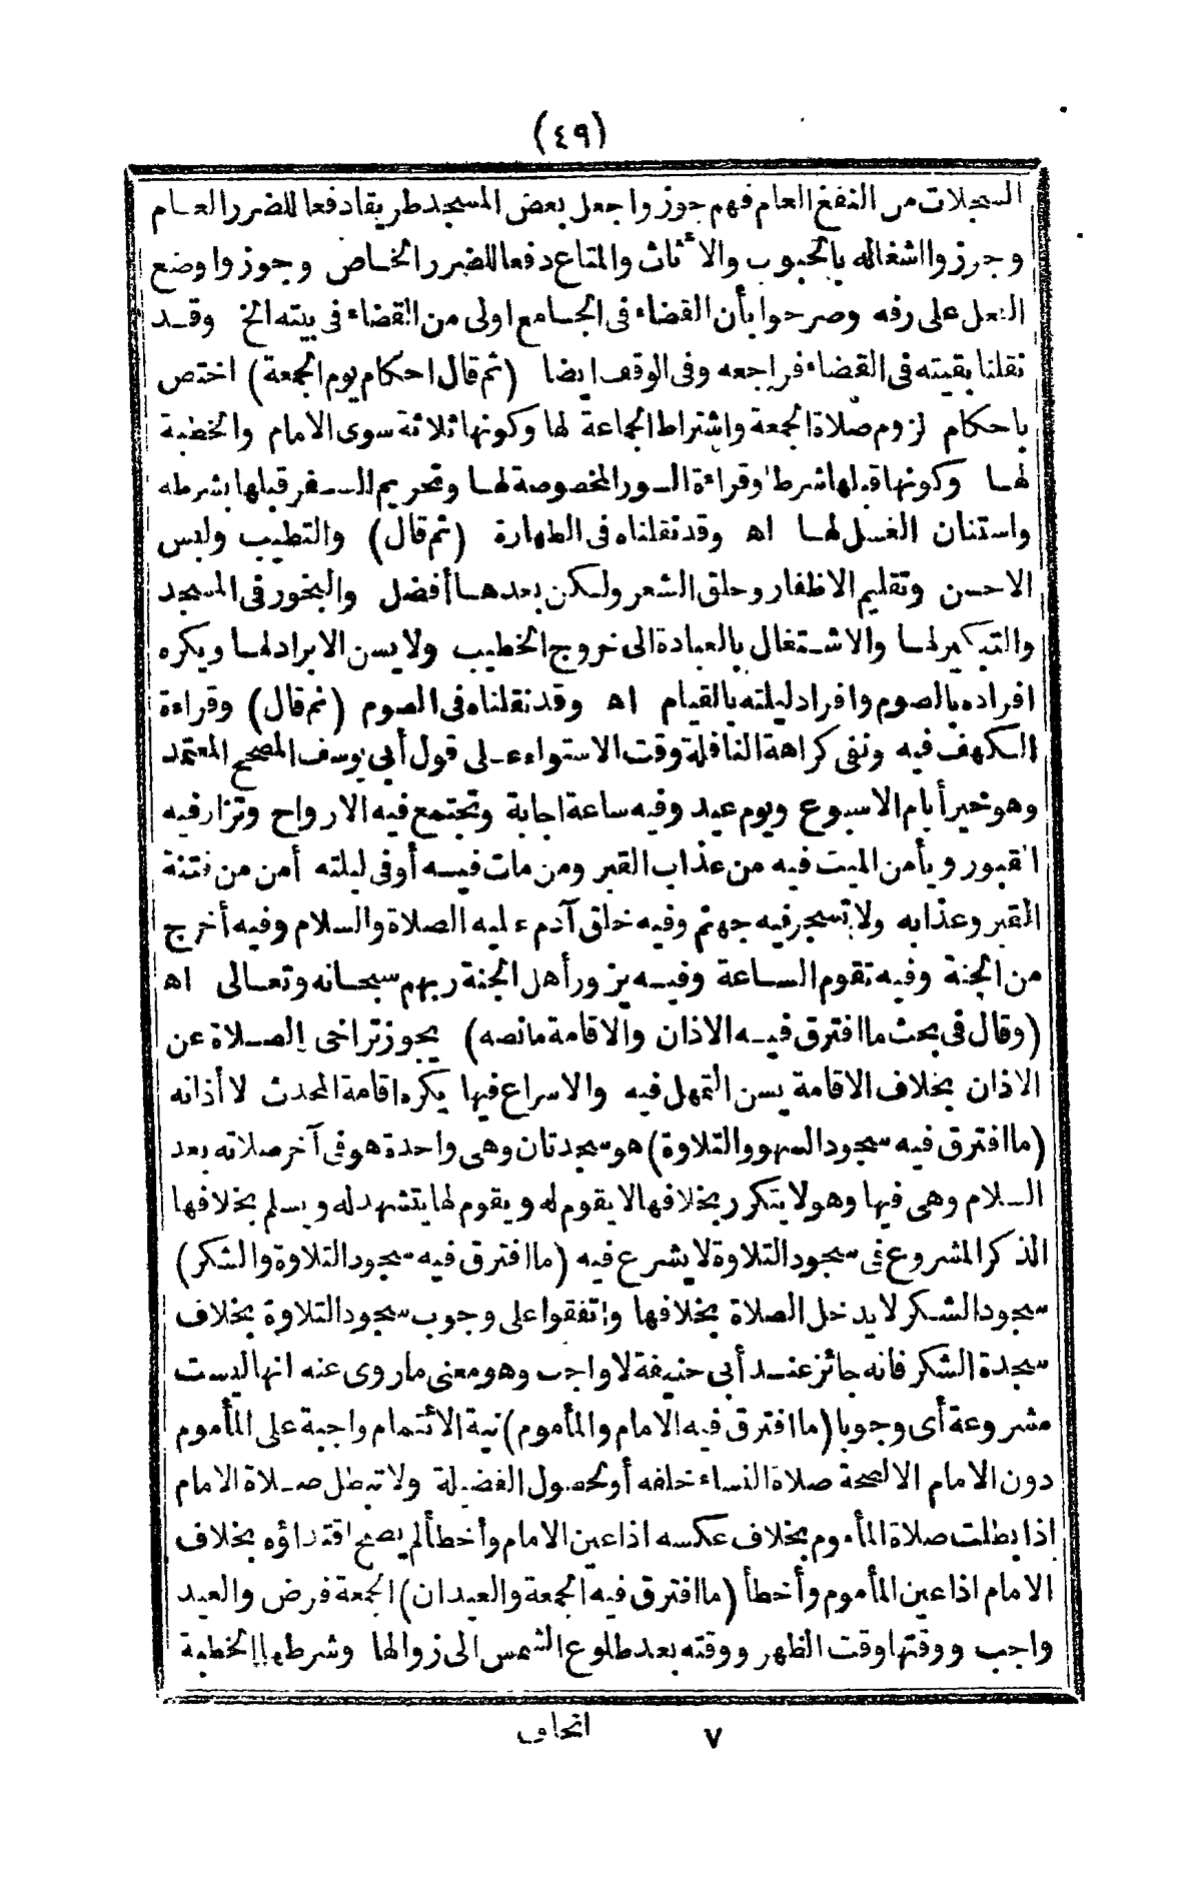 (٤٩)
السجلات من النفع العام فهم جوزوا جعل بعض المسجد طريقا دفعا للضرر العام
وجوزوا اشغاله بالحبوب والأثاث والمتاع دفعا للضرر الخاص وجوزوا وضع
النعل على رفه وصرحوا بأن القضاء فى الجامع اولى من القضاء فى بيته الخ وقد
نقلنا بقيته فى القضاء فراجعه وفى الوقف ايضا (ثم قال احكام يوم الجمعة) اختص
باحكام لزوم صلاة الجمعة واشتراط الجماعة لها وكونها ثلاثة سوى الامام والخطبة
لها وكونها قبلها شرط وقراءة السور المخصوصة لها وتحريم السفر قبلها بشرطه
واستنان الغسل لها اه وقد نقلناه فى الطهارة (ثم قال) والتطيب ولبس
الاحسن وتقليم الاظفار وحلق الشعر ولكن بعدها أفضل والبخور فى المسجد
والتبكير لها والاشتغال بالعبادة الى خروج الخطيب ولا يسن الابراد لها ويكره
افراده بالصوم وافراد ليلته بالقيام اه وقد نقلناه فى الصوم (ثم قال) وقراءة
الكهف فيه ونفى كراهة النافلة وقت الاستواء على قول أبى يوسف المصحح المعتمد
وهو خير أيام الاسبوع ويوم عيد وفيه ساعة اجابة وتجتمع فيه الارواح وتزار فيه
القبور ويأمن الميت فيه من عذاب القبر ومن مات فيه أو فى ليلته أمن من فتنة
القبر وعذابه ولا تسجر فيه جهنم وفيه خلق آدم عليه الصلاة والسلام وفيه أخرج
من الجنة وفيه تقوم الساعة وفيه يزور أهل الجنة ربهم سبحانه وتعالى اه
(وقال فى بحث ما افترق فيه الاذان والاقامة ما نصه) يجوز تراخى الصلاة عن
الاذان بخلاف الاقامة يسن التمهل فيه والاسراع فيها يكره اقامة المحدث لا أذانه
(ما افترق فيه سجود السهو والتلاوة) هو سجدتان وهى واحدة هو فى آخر صلاته بعد
السلام وهى فيها وهو لا يتكرر بخلافها لا يقوم له ويقوم لها يتشهد له ويسلم بخلافها
الذكر المشروع فى سجود التلاوة لا يشرع فيه (ما افترق فيه سجود التلاوة والشكر)
سجود الشكر لا يدخل الصلاة بخلافها واتفقوا على وجوب سجود التلاوة بخلاف
سجدة الشكر فانه جائز عند أبى حنيفة لا واجب وهو معنى ما روى عنه انها ليست
مشروعة أى وجوبا (ما افترق فيه الامام والمأموم) نية الائتمام واجبة على المأموم
دون الامام الا لصحة صلاة النساء خلفه أو لحصول الفضيلة ولا تبطل صلاة الامام
اذا بطلت صلاة المأموم بخلاف عكسه اذا عين الامام وأخطأ لم يصح اقتداؤه بخلاف
الامام اذا عين المأموم وأخطأ (ما افترق فيه الجمعة والعيدان) الجمعة فرض والعيد
واجب ووقتها وقت الظهر ووقته بعد طلوع الشمس الى زوالها وشرطها الخطبة
٧ اتحاف